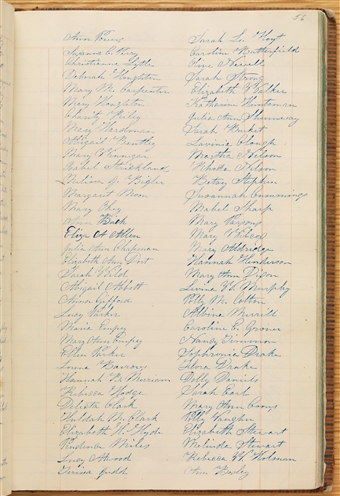 56
Ann
Susanna
Christianna Lytle
Deborah Houghton
Mary M. Carpenter
Mary Houghton
Charity Riley
Mary Herdman
Abigail Bentley
Mary Munger
Isabel Strickland
Bigler
Margaret Moon
Mary Chey
Ann Buck
Eliza A Allen
Julia Ann Chapman
Elizabeth Ann Dort
Sarah Bild
Abigail Abbott
Gifford
Lucy Parker
Maria Empey
Mary Ann Empey
Ellen Parker
Louisa Barrows
Hannah B. Merriam
Rebecca Hodge
Delecta Clark
M. Clark
Elizabeth W. Hyde
Prudence Miles
Lucy Atwood
Terrissa Judd
Sarah Hoyt
Caroline Butterfield
Newell
Sarah Strong
Elizabeth Walker
Katharine Huntsman
Julia Ann Shumway
Sarah Burket
Lavinia Clough
Martha Nelson
Rhoda Nelson
Betsy Stephen
Susannah Cummings
Mabel Sharp
Mary Parsons
Mary Wilson
Mary Aldridge
Hannah Henderson
Mary Ann Dixon
Levina W. Murphy
Polly M. Cotton
Albina Merrill
Caroline E. Grover
Nancy Timmons
Sophronia Drake
Flora Drake
Polly Daniels
Sarah Earl
Mary Ann
Polly
Elizabeth Stewart
Melinda Stewart
Rebecka W. Holman
Ann Busby